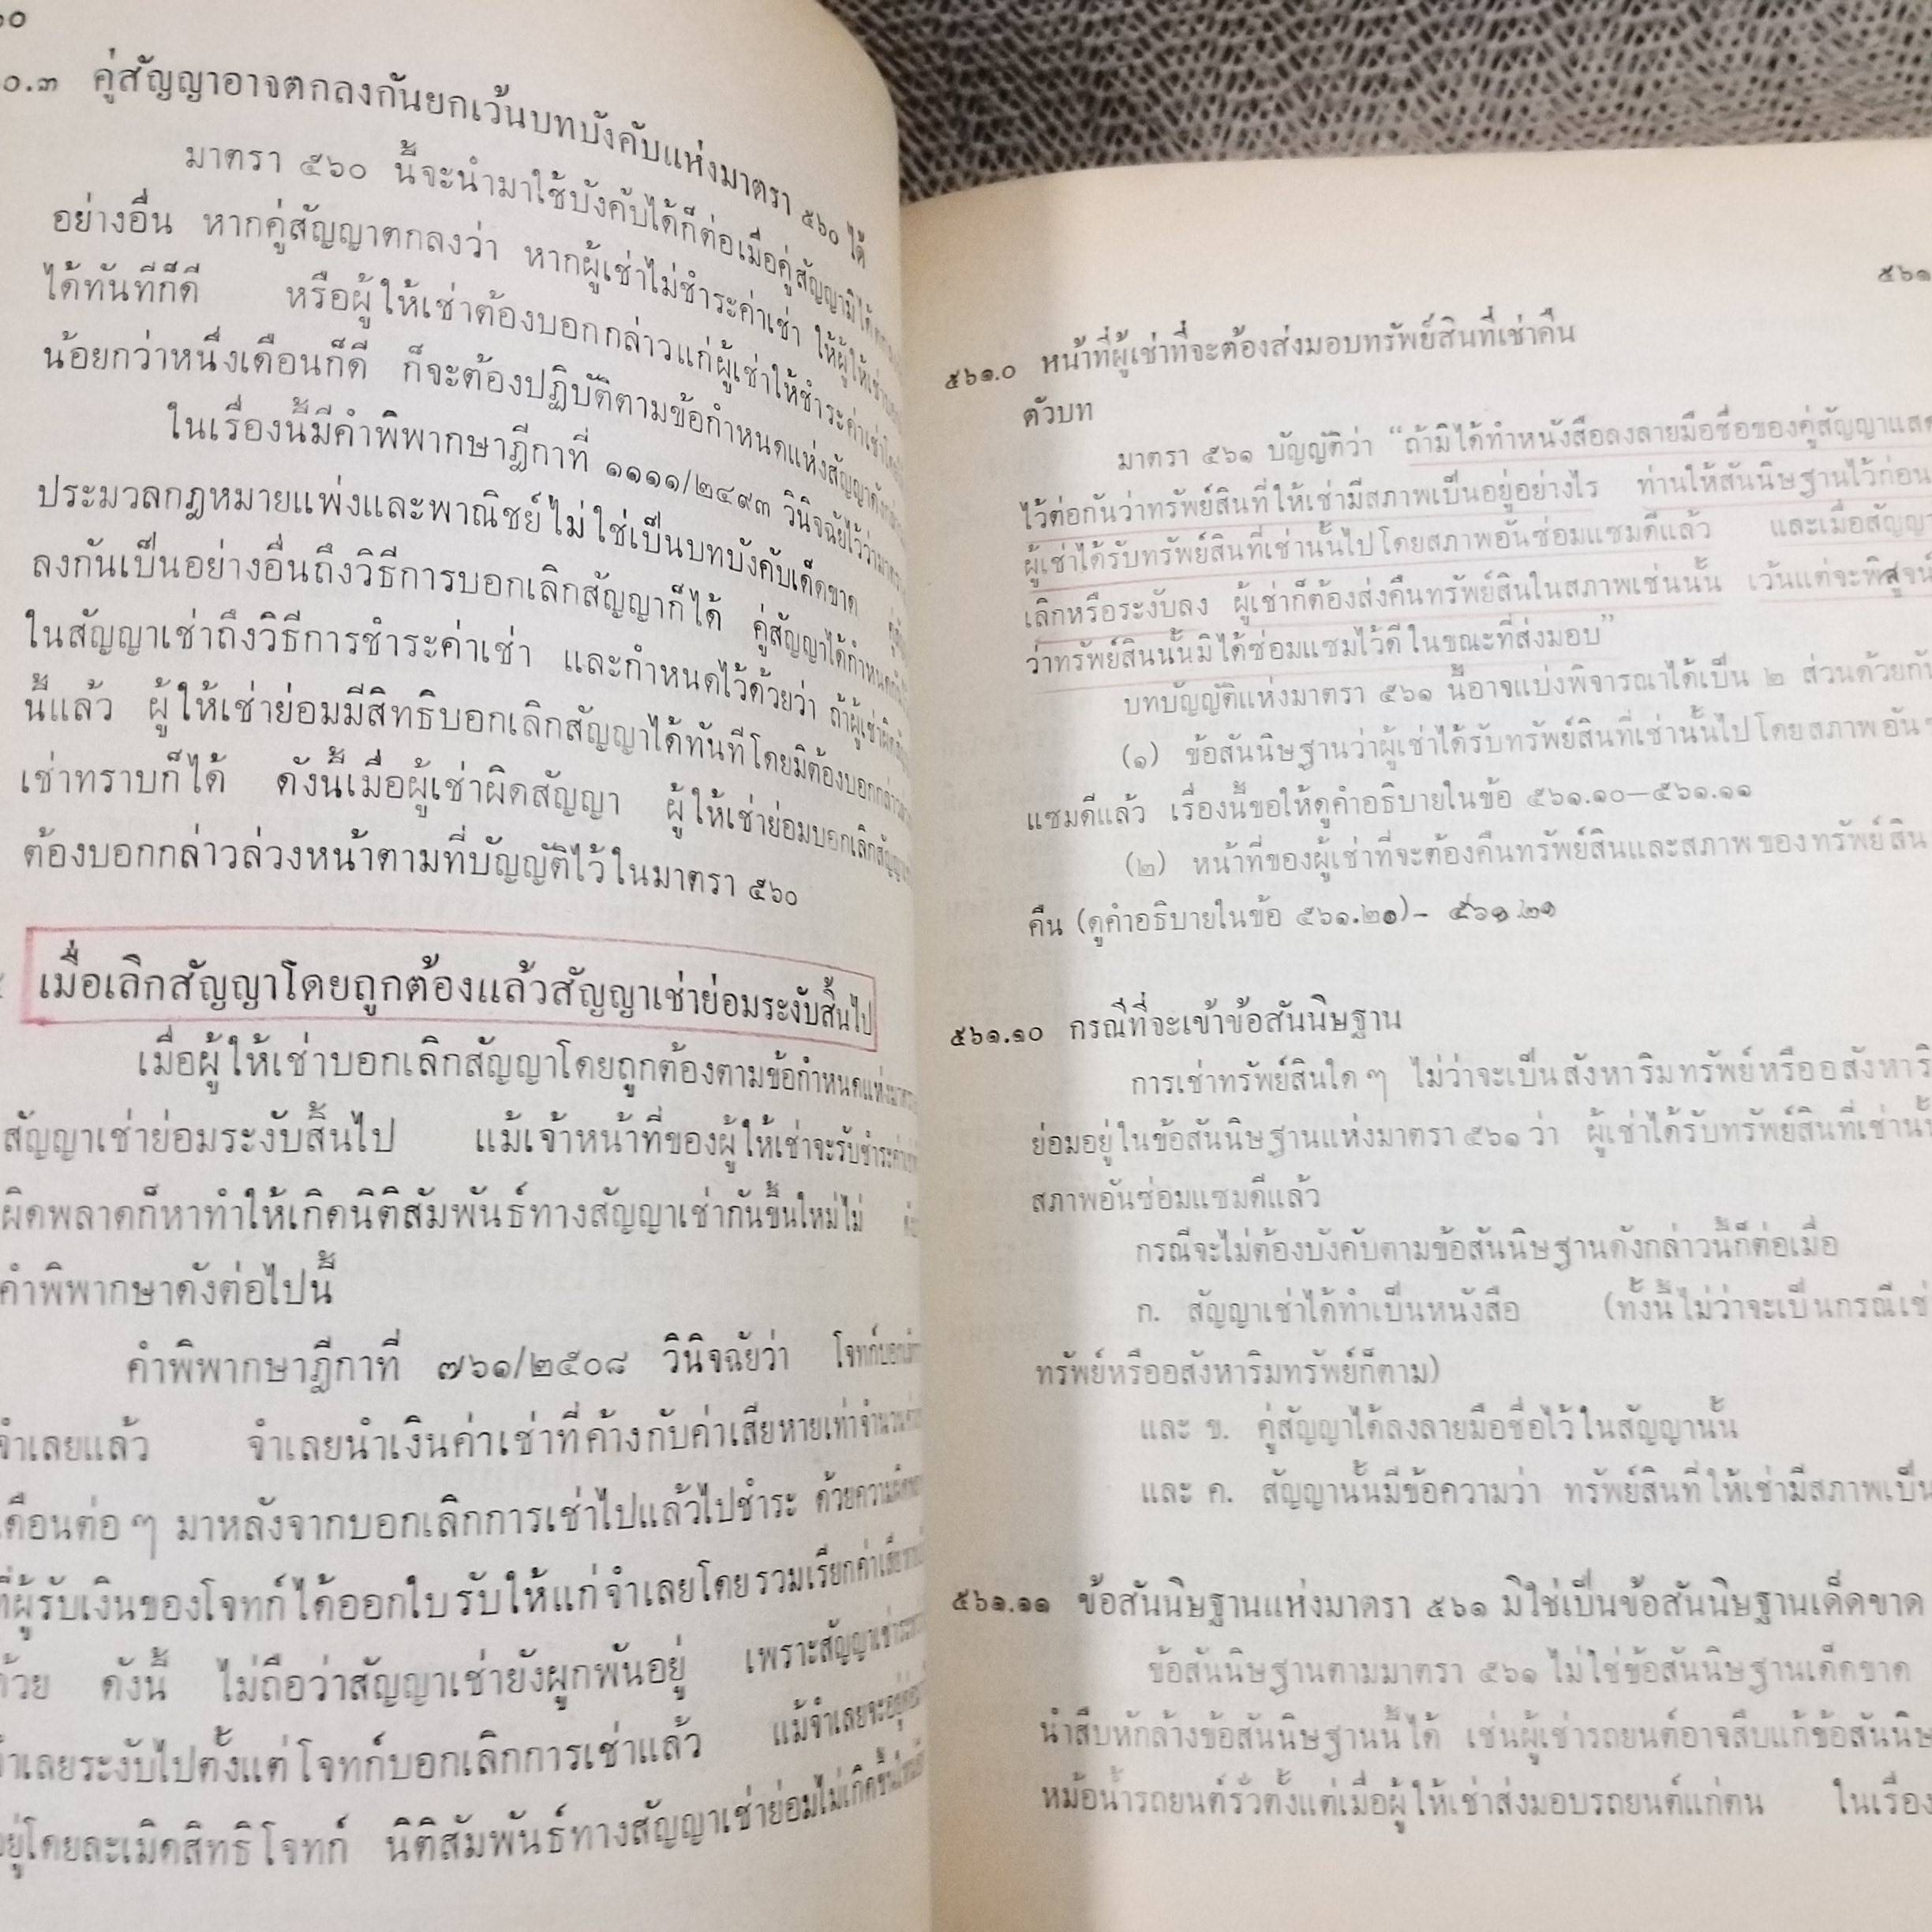 ๐.๓ คู่สัญญาอาจตกลงกันยกเว้นบทบังคับแห่งมาตรา ๕๖๐ ได้
มาตรา ๕๖๐ นี้จะนำมาใช้บังคับได้ก็ต่อเมื่อคู่สัญญามิได้
อย่างอื่น หากคู่สัญญาตกลงว่า หากผู้เช่าไม่ชำระค่าเช่า ให้ผู้ให้เช่า
ได้ทันทีก็ดี หรือผู้ให้เช่าต้องบอกกล่าวแก่ผู้เช่าให้ชำระค่าเช่า
น้อยกว่าหนึ่งเดือนก็ดี ก็จะต้องปฏิบัติตามข้อกำหนดแห่งสัญญา
ในเรื่องนี้มีคำพิพากษาฎีกาที่ ๑๑๑๑/๒๔๙๓ วินิจฉัยไว้ว่า
ประมวลกฎหมายแพ่งและพาณิชย์ไม่ใช่เป็นบทบังคับเด็ดขาด
ลงกันเป็นอย่างอื่นถึงวิธีการบอกเลิกสัญญาก็ได้ คู่สัญญาได้กำหนด
ในสัญญาเช่าถึงวิธีการชำระค่าเช่า และกำหนดไว้ด้วยว่า ถ้าผู้เช่าผิด
นี้แล้ว ผู้ให้เช่าย่อมมีสิทธิบอกเลิกสัญญาได้ทันทีโดยมิต้องบอกกล่าว
เช่าทราบก็ได้ ดังนี้เมื่อผู้เช่าผิดสัญญา ผู้ให้เช่าย่อมบอกเลิกสัญญา
ต้องบอกกล่าวล่วงหน้าตามที่บัญญัติไว้ในมาตรา ๕๖๐
เมื่อเลิกสัญญาโดยถูกต้องแล้วสัญญาเช่าย่อมระงับสิ้นไป
เมื่อผู้ให้เช่าบอกเลิกสัญญาโดยถูกต้องตามข้อกำหนดแห่ง
สัญญาเช่าย่อมระงับสิ้นไป แม้เจ้าหน้าที่ของผู้ให้เช่าจะรับชำระ
ผิดพลาดก็หาทำให้เกิดนิติสัมพันธ์ทางสัญญาเช่ากันขึ้นใหม่ไม่
คำพิพากษาดังต่อไปนี้
คำพิพากษาฎีกาที่ ๗๖๑/๒๕๐๘ วินิจฉัยว่า โจทก์บอก
จำเลยแล้ว จำเลยนำเงินค่าเช่าที่ค้างกับค่าเสียหายเท่าจำนวน
เดือนต่อๆ มาหลังจากบอกเลิกการเช่าไปแล้วไปชำระ ด้วยความผิด
ที่ผู้รับเงินของโจทก์ได้ออกใบรับให้แก่จำเลยโดยรวมเรียกค่า
ด้วย ดังนี้ ไม่ถือว่าสัญญาเช่ายังผูกพันอยู่ เพราะสัญญาเช่า
จำเลยระงับไปตั้งแต่โจทก์บอกเลิกการเช่าแล้ว แม้จำเลยจะอยู่
อยู่โดยละเมิดสิทธิโจทก์ นิติสัมพันธ์ทางสัญญาเช่าย่อมไม่เกิดขึ้น
๕๖๑
๕๖๑.๐ หน้าที่ผู้เช่าที่จะต้องส่งมอบทรัพย์สินที่เช่าคืน
ตัวบท
มาตรา ๕๖๑ บัญญัติว่า “ถ้ามิได้ทำหนังสือลงลายมือชื่อของคู่สัญญาแสด
ไว้ต่อกันว่าทรัพย์สินที่ให้เช่ามีสภาพเป็นอยู่อย่างไร ท่านให้สันนิษฐานไว้ก่อน
ผู้เช่าได้รับทรัพย์สินที่เช่านั้นไปโดยสภาพอันซ่อมแซมดีแล้ว และเมื่อสัญญา
เลิกหรือระงับลง ผู้เช่าก็ต้องส่งคืนทรัพย์สินในสภาพเช่นนั้น เว้นแต่จะพิสูจน์
ว่าทรัพย์สินนั้นมิได้ซ่อมแซมไว้ดีในขณะที่ส่งมอบ”
บทบัญญัติแห่งมาตรา ๕๖๑ นี้อาจแบ่งพิจารณาได้เป็น ๒ ส่วนด้วยกัน
(๑) ข้อสันนิษฐานว่าผู้เช่าได้รับทรัพย์สินที่เช่านั้นไปโดยสภาพอัน
แซมดีแล้ว เรื่องนี้ขอให้ดูคำอธิบายในข้อ ๕๖๑.๑๐—๕๖๑.๑๑
(๒) หน้าที่ของผู้เช่าที่จะต้องคืนทรัพย์สินและสภาพของทรัพย์สิน
คืน (ดูคำอธิบายในข้อ ๕๖๑.๒๐)- ๕๖๑.๒๑
๕๖๑.๑๐ กรณีที่จะเข้าข้อสันนิษฐาน
การเช่าทรัพย์สินใดๆ ไม่ว่าจะเป็นสังหาริมทรัพย์หรืออสังหาริ
ย่อมอยู่ในข้อสันนิษฐานแห่งมาตรา ๕๖๑ ว่า ผู้เช่าได้รับทรัพย์สินที่เช่านั้
สภาพอันซ่อมแซมดีแล้ว
กรณีจะไม่ต้องบังคับตามข้อสันนิษฐานดังกล่าวนี้ก็ต่อเมื่อ
ก. สัญญาเช่าได้ทำเป็นหนังสือ (ทั้งนี้ไม่ว่าจะเป็นกรณีเช่
ทรัพย์หรืออสังหาริมทรัพย์ก็ตาม)
และ ข. คู่สัญญาได้ลงลายมือชื่อไว้ในสัญญานั้น
และ ค. สัญญานั้นมีข้อความว่า ทรัพย์สินที่ให้เช่ามีสภาพเป็น
๕๖๑.๑๑ ข้อสันนิษฐานแห่งมาตรา ๕๖๑ มิใช่เป็นข้อสันนิษฐานเด็ดขาด
ข้อสันนิษฐานตามมาตรา ๕๖๑ ไม่ใช่ข้อสันนิษฐานเด็ดขาด
นำสืบหักล้างข้อสันนิษฐานนี้ได้ เช่นผู้เช่ารถยนต์อาจสืบแก้ข้อสันนิษ
หม้อน้ำรถยนต์รั่วตั้งแต่เมื่อผู้ให้เช่าส่งมอบรถยนต์แก่ตน ในเรื่อง